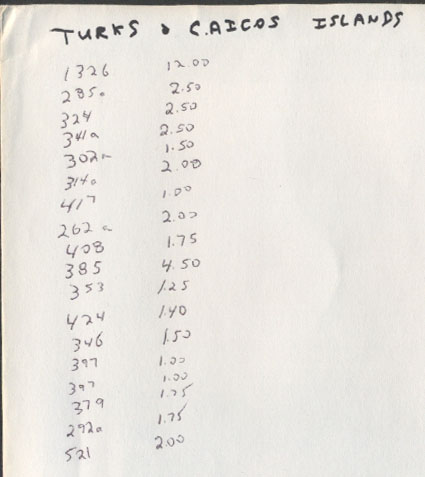 TURKS & CAICOS ISLANDS
1326 12.00
285a 2.50
324 2.50
341a 2.50
302a 1.50
314a 2.00
417 1.00
262a 2.00
408 1.75
385 4.50
353 1.25
424 1.40
346 1.50
397 1.00
397 1.00
379 1.75
292a 1.75
521 2.00